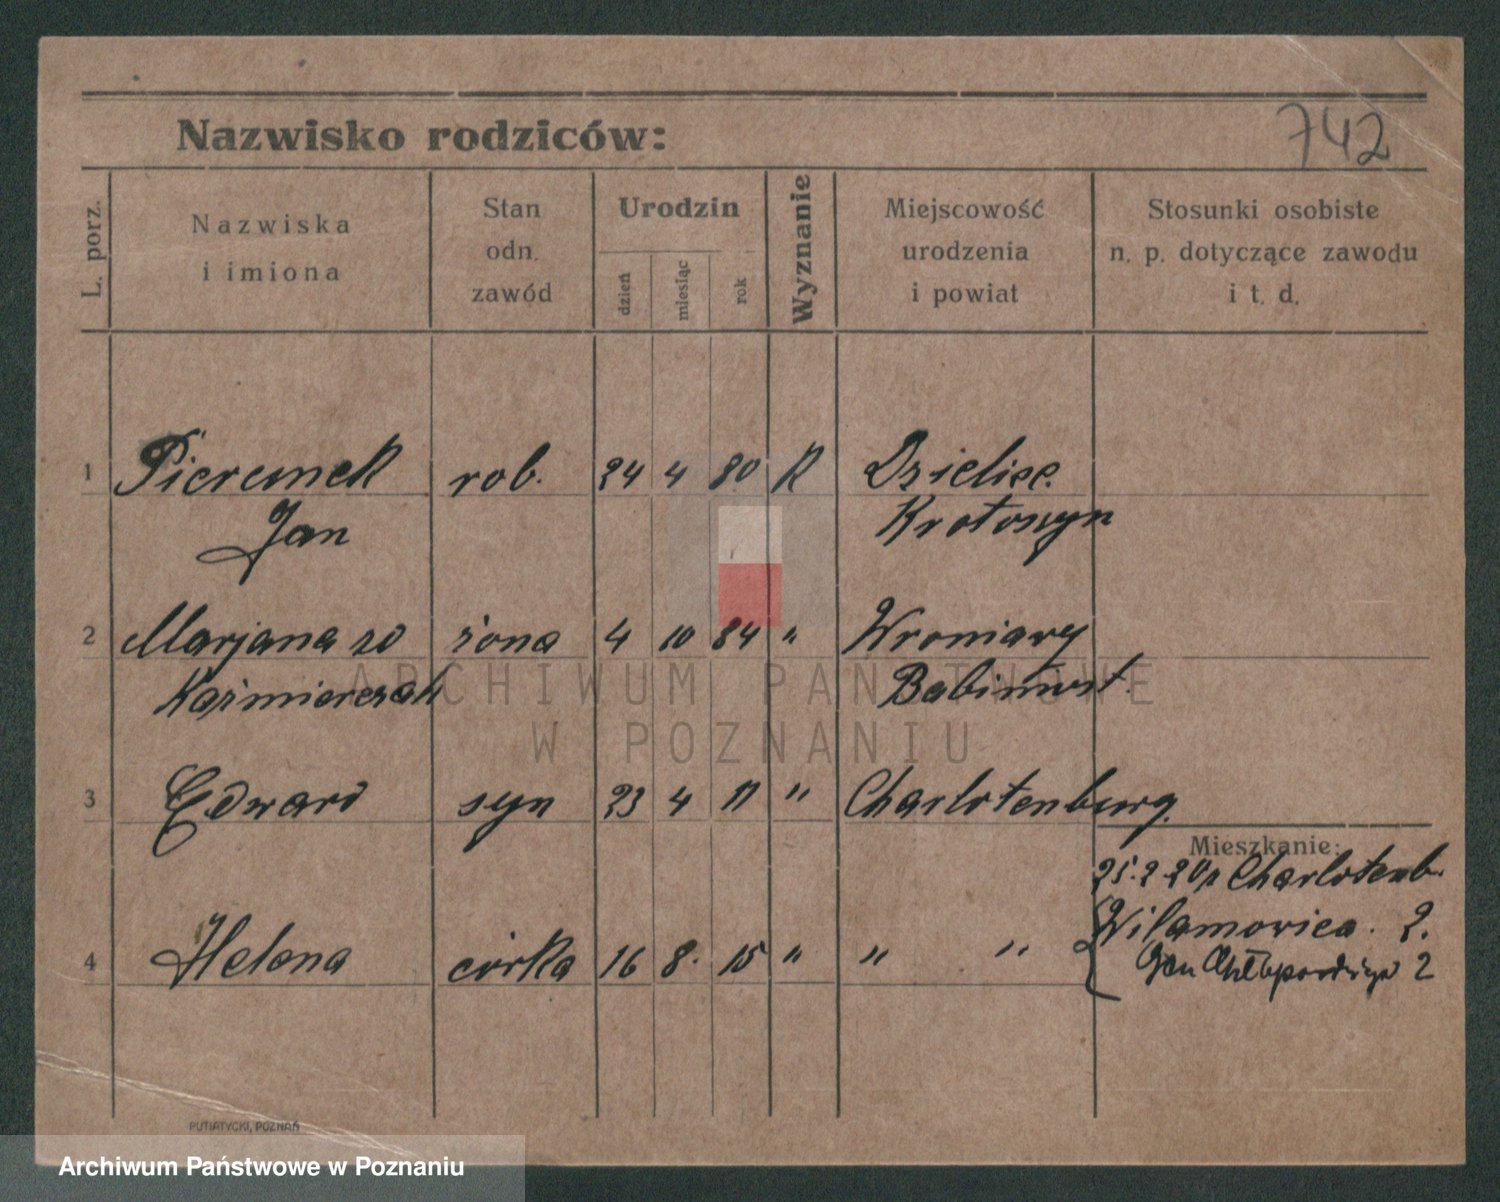 742
Nazwisko rodziców:
L. porz.
Nazwiska
i imiona
Stan
odn.
zawód
Urodzin
dzień
miesiąc
rok
Wyznanie
Miejscowość
urodzenia
i powiat
Stosunki osobiste
n. p. dotyczące zawodu
i t. d.
1 Pieremek rob. 24 4 80 K Dzielice
Jan Krotoszyn
2 Marjana zd żona 4 10 84 " Wroniawy
Kaźmierczak Babimost.
ARCHIWUM PAŃSTWOWE
W POZNANIU
3 Edward syn 23 4 11 " Charlotenburg.
Mieszkanie:
25.2.20 Charlotenb.
Wilamovica. 2.
4 Helena córka 16 8. 15 " " "
Gen Chłapowskiego 2
PUTIATYCKI, POZNAŃ
Archiwum Państwowe w Poznaniu